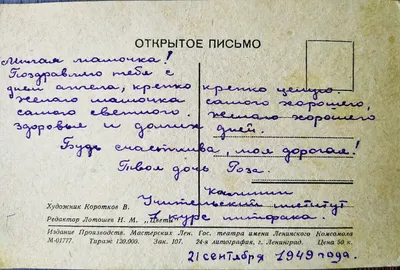 ОТКРЫТОЕ ПИСЬМО
Милая мамочка!
Поздравляю тебя с
днем ангела, крепко крепко целую.
Желаю мамочка самого хорошего,
самого светлого. Желаю хорошего
здоровья и долгих дней.
Будь счастлива, моя дорогая!
Твоя дочь Роза.
Калинин
Учительский институт
1 курс литфака.
Художник Коротков В.
Редактор Лотошев Н. М. „Цветы“
Издание Производств. Мастерских Лен. Гос. театра имени Ленинского Комсомола
М-01777. Тираж 120.000. Зак. 107. 24-я литография, г. Ленинград. Цена 50 к.
21 сентября 1949 года.